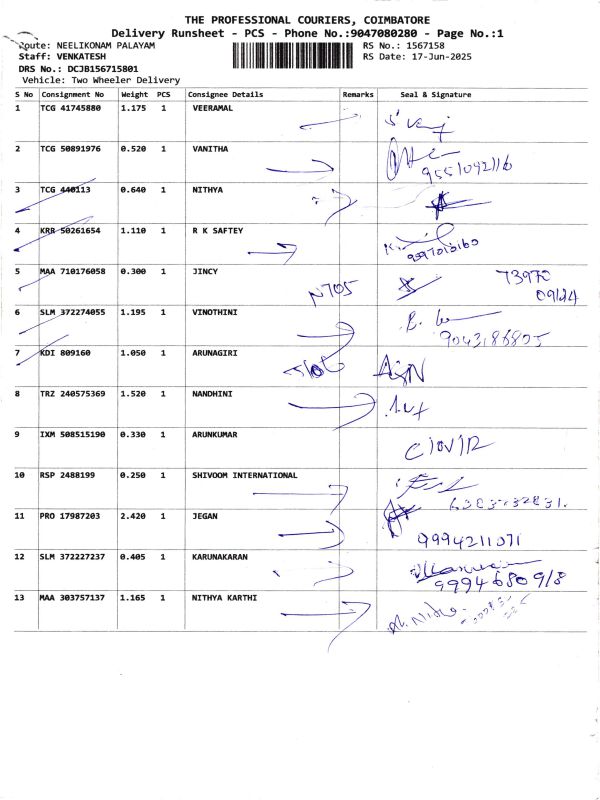 THE PROFESSIONAL COURIERS, COIMBATORE
Delivery Runsheet - PCS - Phone No.:9047080280 - Page No.:1
Route: NEELIKONAM PALAYAM
RS No.: 1567158
Staff: VENKATESH
RS Date: 17-Jun-2025
DRS No.: DCJB156715801
Vehicle: Two Wheeler Delivery
S No Consignment No Weight PCS Consignee Details Remarks Seal & Signature
1 TCG 41745880 1.175 1 VEERAMAL
2 TCG 50891976 0.520 1 VANITHA
9551092116
3 TCG 440113 0.640 1 NITHYA
4 KRR 50261654 1.110 1 R K SAFTEY
5 MAA 710176058 0.300 1 JINCY
N705
6 SLM 372274055 1.195 1 VINOTHINI
9043186805
7 KDI 809160 1.050 1 ARUNAGIRI
8 TRZ 240575369 1.520 1 NANDHINI
9 IXM 508515190 0.330 1 ARUNKUMAR
10 RSP 2488199 0.250 1 SHIVOOM INTERNATIONAL
11 PRO 17987203 2.420 1 JEGAN
9994211071
12 SLM 372227237 0.405 1 KARUNAKARAN
13 MAA 303757137 1.165 1 NITHYA KARTHI